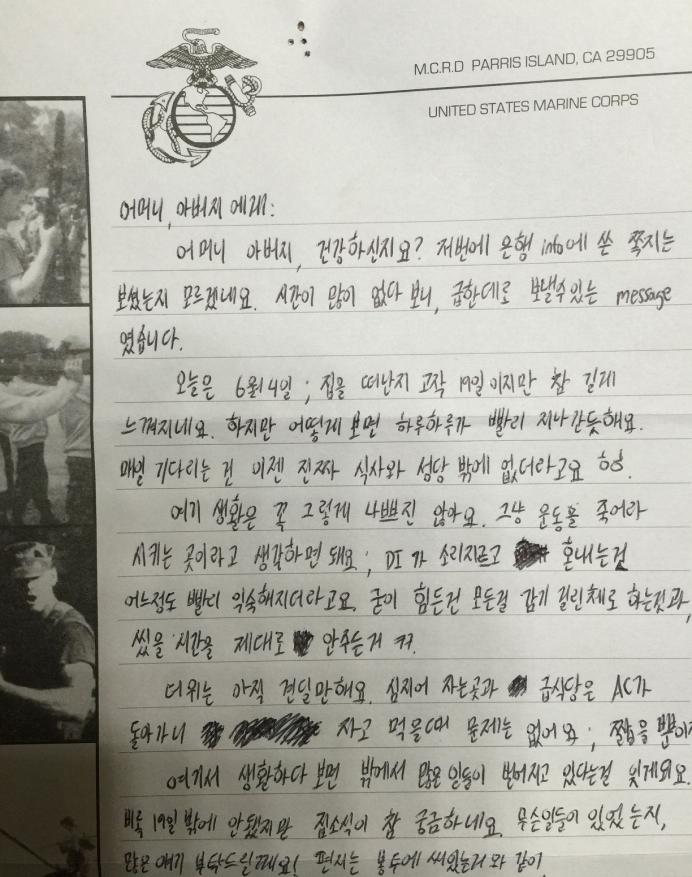 M.C.R.D PARRIS ISLAND, CA 29905
UNITED STATES MARINE CORPS
어머니, 아버지 에게:
어머니 아버지, 건강하신지요? 저번에 은행 info에 쓴 쪽지는
보셨는지 모르겠네요. 시간이 많이 없다 보니, 급한데로 보낼수있는 message
였습니다.
오늘은 6월 4일 ; 집을 떠난지 고작 19일 이지만 참 길게
느껴지네요. 하지만 어떻게 보면 하루하루가 빨리 지나간듯해요.
매일 기다리는 건 이젠 진짜 식사와 성당 밖에 없더라고요 하하.
여기 생활은 꼭 그렇게 나쁘진 않아요. 그냥 운동을 죽어라
시키는 곳이라고 생각하면 돼요 ; DI 가 소리지르고 혼내는것
어느정도 빨리 익숙해지더라고요. 굳이 힘든건 모든걸 감기 걸린채로 하는것과,
씻을 시간을 제대로 안주는거 ㅋㅋ.
더위는 아직 견딜만해요. 심지어 자는곳과 급식당은 AC가
돌아가니 자고 먹을때 문제는 없어요 ; 짧을 뿐이지
여기서 생활하다 보면 밖에서 많은 일들이 벌어지고 있다는걸 잊게되요.
비록 19일 밖에 안됐지만 집소식이 참 궁금하네요. 무슨일들이 있었는지,
많은 얘기 부탁드릴께요! 편지는 봉투에 써있는거 와 같이